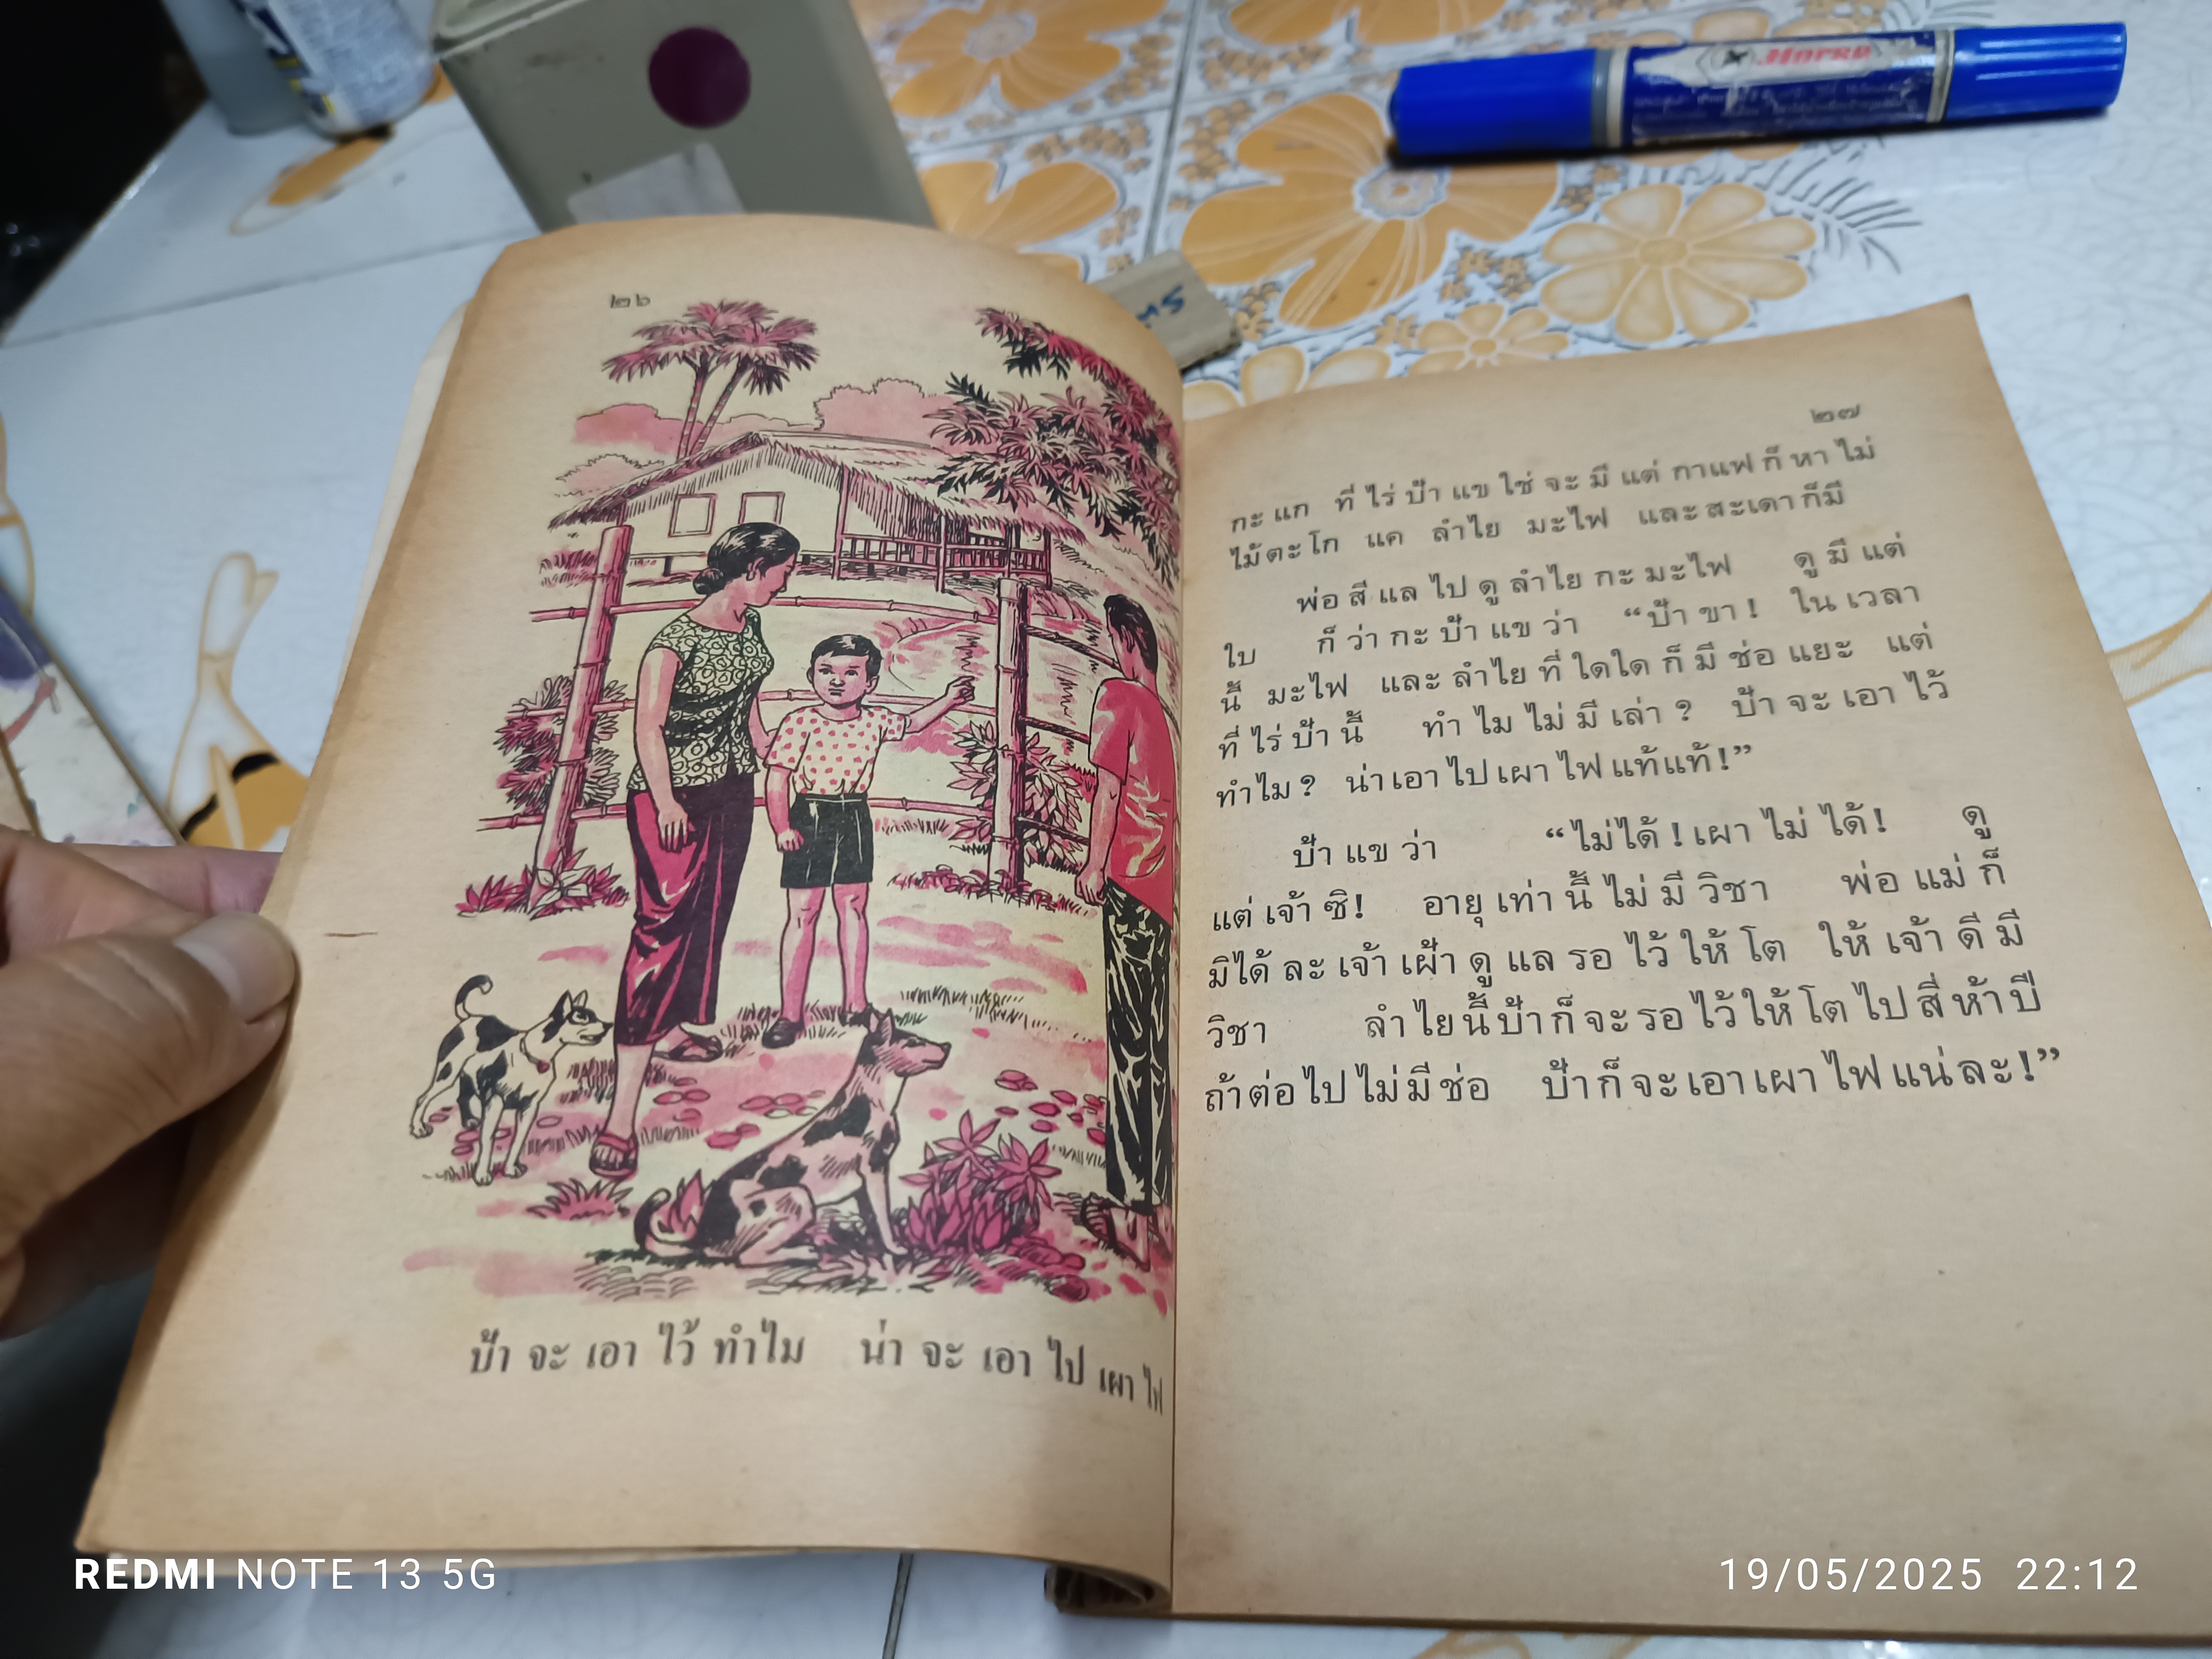 ๒๖
ป้า จะ เอา ไว้ ทำไม น่า จะ เอา ไป เผา ไฟ
๒๗
กะ แก ที่ ไร่ ป้า แข ใช่ จะ มี แต่ กาแฟ ก็ หา ไม่
ไม้ตะโก แค ลำไย มะไฟ และสะเดาก็มี
พ่อ สี แล ไป ดู ลำไย กะ มะไฟ ดู มี แต่
ใบ ก็ ว่า กะ ป้า แข ว่า “ป้า ขา! ใน เวลา
นี้ มะไฟ และ ลำไย ที่ ใดใด ก็ มี ช่อ แยะ แต่
ที่ ไร่ ป้า นี้ ทำ ไม ไม่ มี เล่า? ป้า จะ เอา ไว้
ทำไม? น่า เอา ไป เผา ไฟ แท้แท้!”
ป้า แข ว่า “ไม่ได้! เผา ไม่ ได้! ดู
แต่ เจ้า ซิ! อายุ เท่า นี้ ไม่ มี วิชา พ่อ แม่ ก็
มิได้ ละ เจ้า เฝ้า ดู แล รอ ไว้ ให้ โต ให้ เจ้า ดี มี
วิชา ลำไยนี้ ป้า ก็ จะ รอ ไว้ ให้ โต ไป สี่ ห้า ปี
ถ้า ต่อ ไป ไม่ มี ช่อ ป้า ก็ จะ เอา เผา ไฟ แน่ ละ!”
Horse
REDMI NOTE 13 5G
19/05/2025 22:12